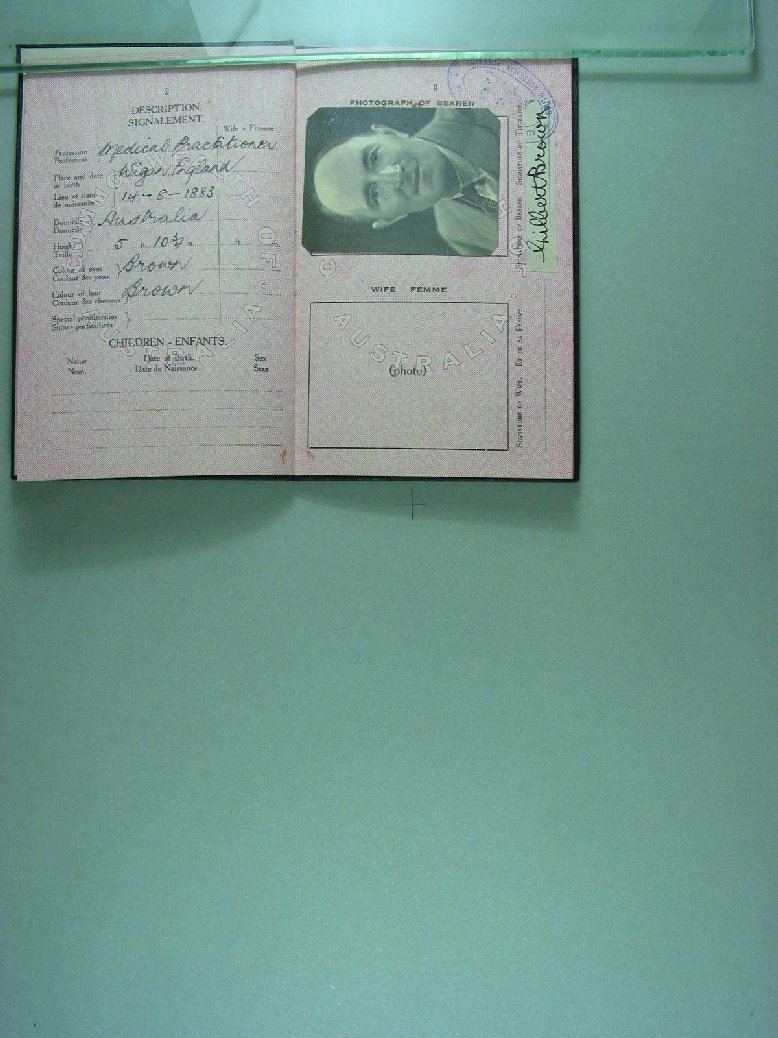 2
DESCRIPTION
SIGNALEMENT.
Wife - Femme
Profession
Profession
Medical Practitioner
Place and date
of birth
England
Lieu et date
de naissance
14 - 8 - 1883
Domicile
Domicile
Australia
Height
Taille
5
Colour of eyes
Couleur des yeux
Brown
Colour of hair
Couleur des cheveux
Brown
Special peculiarities
Signes particuliers
CHILDREN - ENFANTS.
Name
Nom
Date of Birth.
Date de Naissance
Sex
Sexe
COMMONWEALTH OF
AUSTRALIA
PHOTOGRAPH OF BEARER
SIGNATURE OF BEARER. SIGNATURE DU TITULAIRE.
Gilbert Brown
WIFE FEMME
AUSTRALIA
(photo)
SIGNATURE OF WIFE. ET DE SA FEMME.